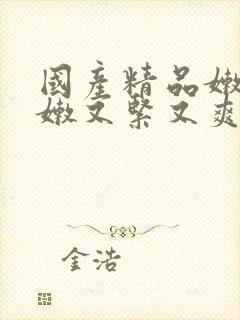 國產精品嫩
嫩又緊又爽
金浩